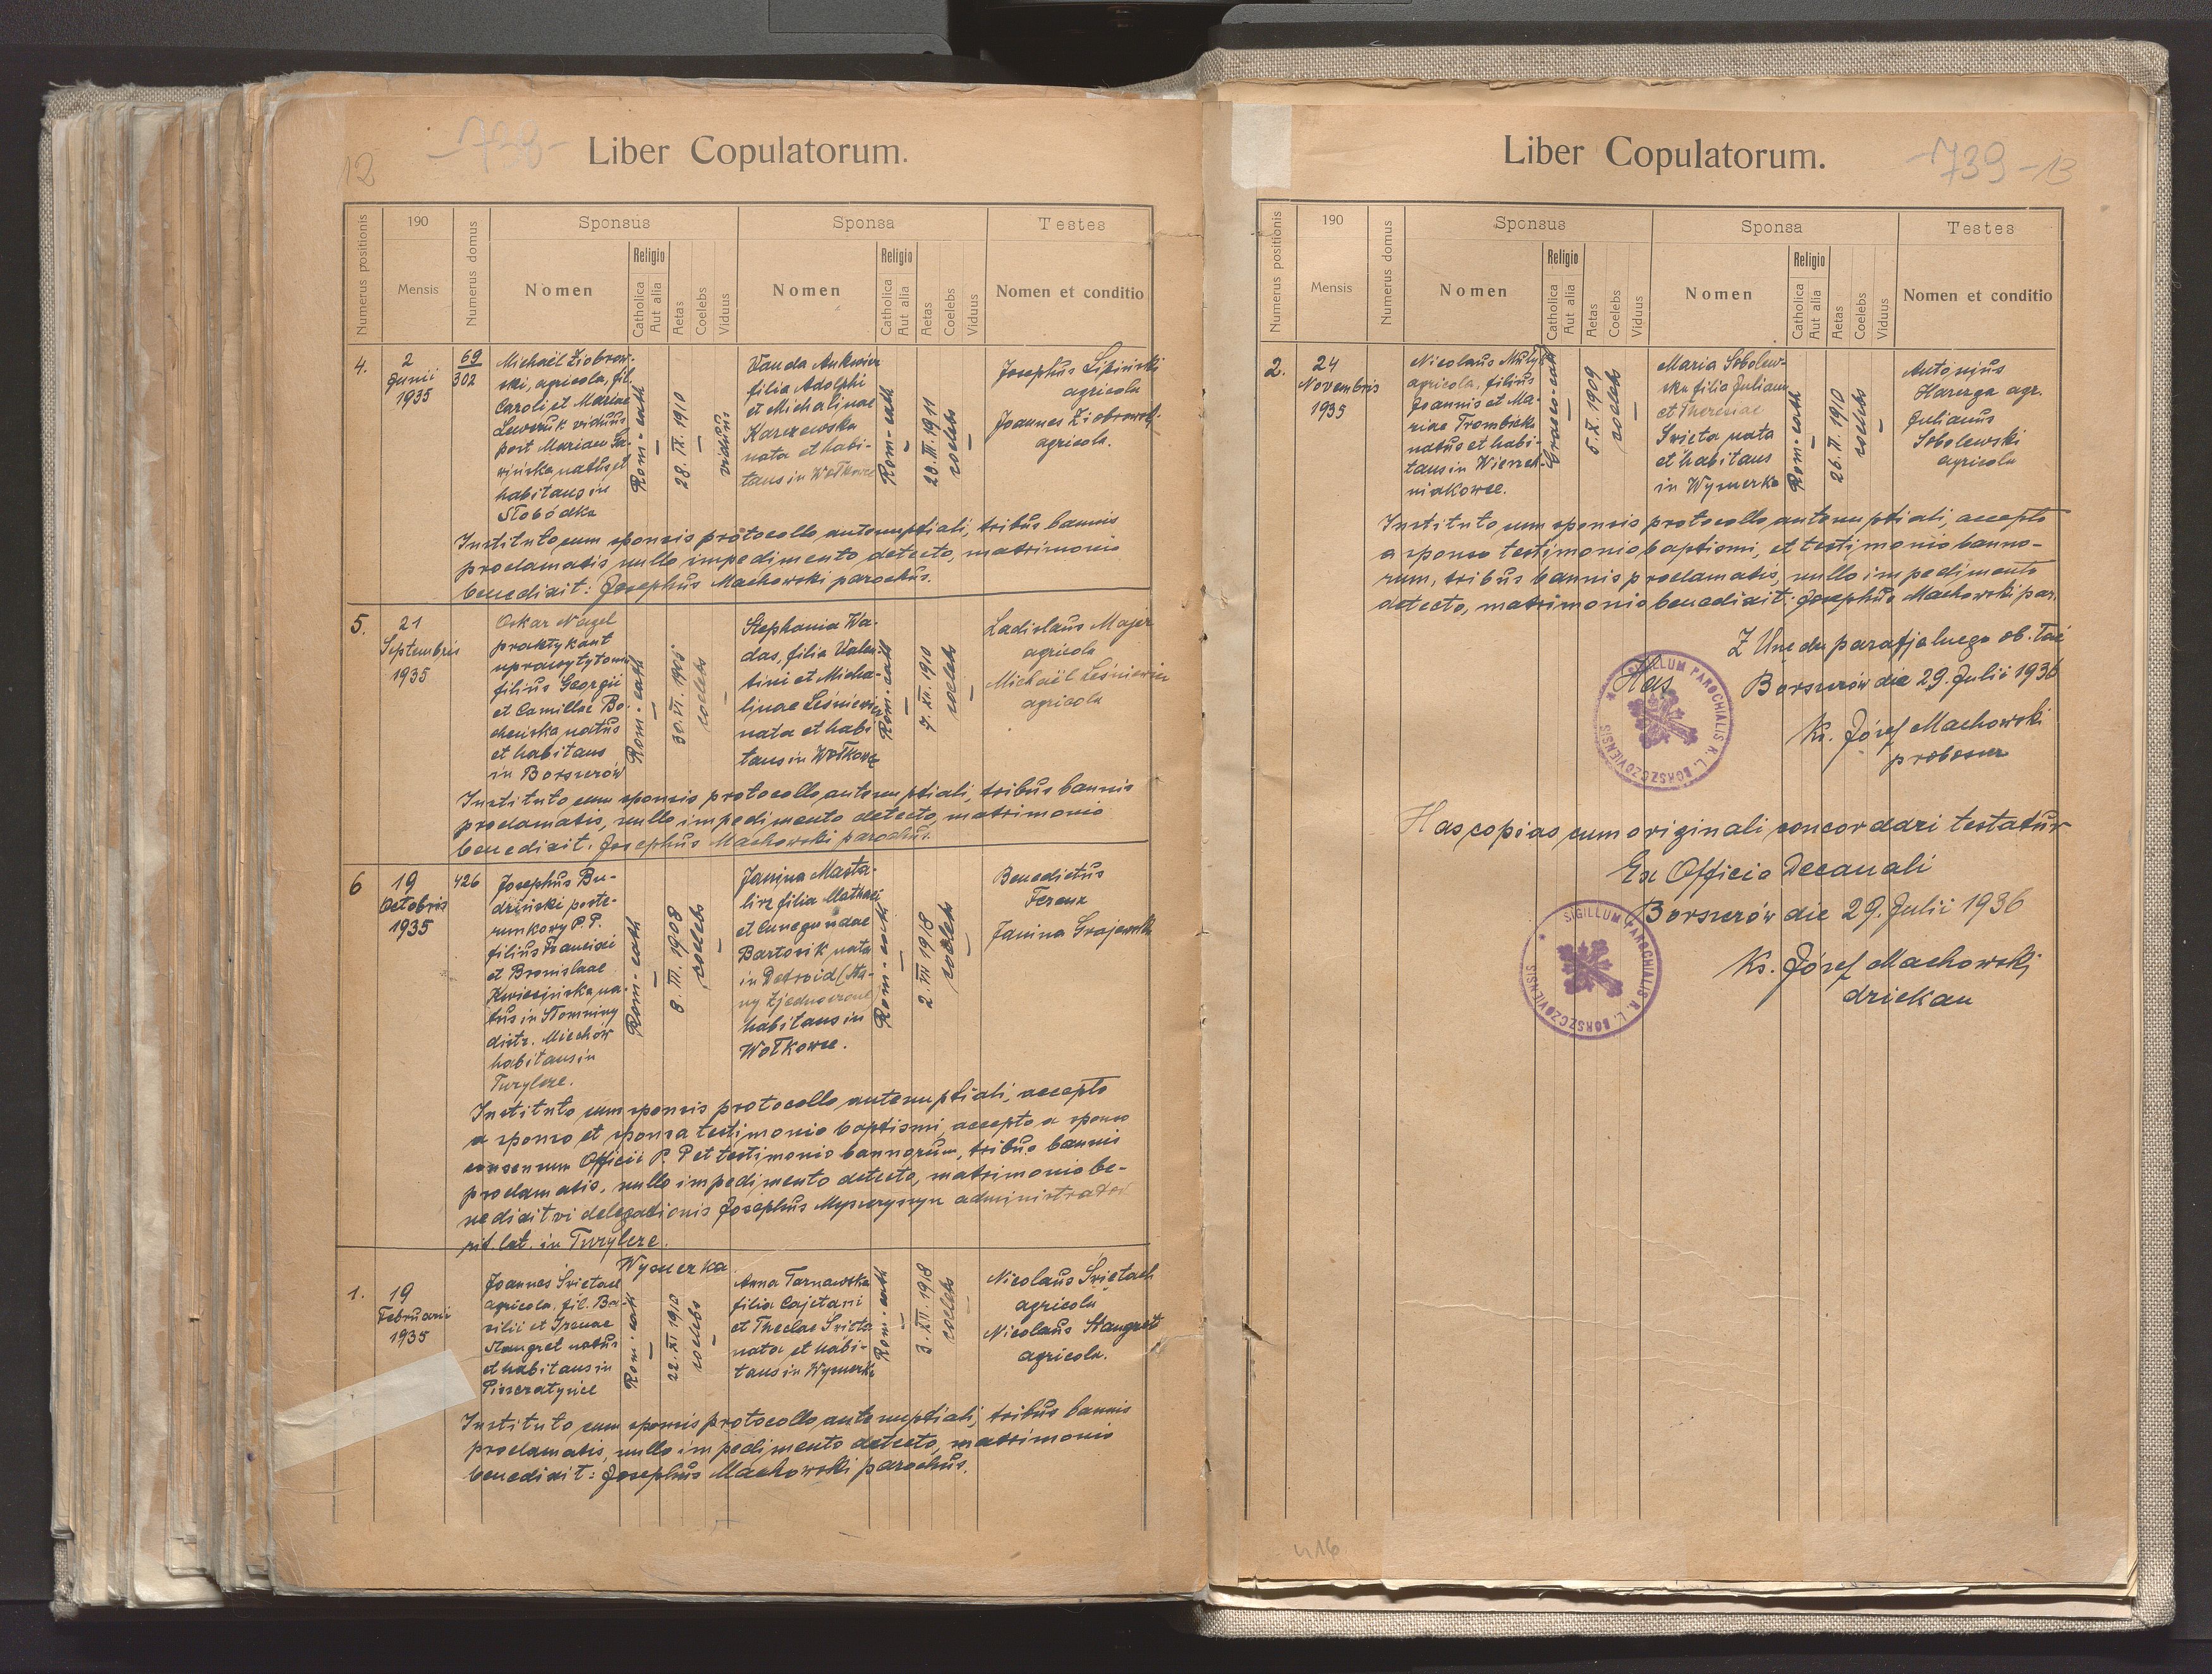 12
-738-
Liber Copulatorum.
Numerus positionis
190
Mensis
Numerus domus
Sponsus
Nomen
Religio
Catholica
Aut alia
Aetas
Coelebs
Viduus
Sponsa
Nomen
Religio
Catholica
Aut alia
Aetas
Coelebs
Viduus
Testes
Nomen et conditio
4.
2
Junii
1935
69
302
Michaël Ziobrow-
ski, agricola, fil.
Caroli et Mariae
Lewczuk viduus
post Mariam Sa-
wińska natus et
habitans in
Słobódka
Rom-cath
—
28. IX. 1910
—
viduus
Vanda Ankiewicz
filia Adolphi
et Michalinae
Karczewska
nata et habi-
tans in Wołkowce
Rom-cath
—
20. III. 1911
coelebs
—
Josephus Lipiński
agricola
Joannes Ziobrowski
agricola.
Instituto cum sponsis protocollo antenuptiali, tribus bannis
proclamatis, nullo impedimento detecto, matrimonio
benedixit: Josephus Machowski parochus.
5.
21
Septembris
1935
Oskar Nagel
praktykant
filius Georgii
et Camillae Bo-
cheńska natus
et habitans
in Borszczów
Rom-cath
—
30. VI. 1905
coelebs
—
Stephania Wa-
das, filia Valen-
tini et Micha-
linae Leśniewicz
nata et habi-
tans in Wołkowce
Rom-cath
—
7. XII. 1910
coelebs
—
Ladislaus Majer
agricola
Michaël Leśniewicz
agricola
Instituto cum sponsis protocollo antenuptiali, tribus bannis
proclamatis, nullo impedimento detecto, matrimonio
benedixit: Josephus Machowski parochus.
6
19
Octobris
1935
426
Josephus Bu-
dziński poste-
runkowy P.P.
filius Francisci
et Bronislaae
Kwiecińska na-
tus in Słomniny
distr. Miechów
habitans in
Turylcze.
Rom-cath
—
8. III. 1908
coelebs
—
Janina Masta-
lirz filia Mathaei
et Cunegundae
Bartosik nata
in Detroid (Sta-
ny Zjednoczone)
habitans in
Wołkowce.
Rom-cath
—
2. III 1918
coelebs
—
Benedictus
Ferenz
Janina Grajewska
Instituto cum sponsis protocollo antenuptiali, accepto
a sponso et sponsa testimonio baptismi, accepto a sponso
consensum Officii P.P et testimonio bannorum, tribus bannis
proclamatis, nullo impedimento detecto, matrimonio be-
nedixit vi delegationis Josephus Myszczyszyn administrator
rit. lat. in Turylcze.
Wysuczka
1.
19
Februarii
1935
Joannes Świetach
agricola, fil. Ba-
silii et Irenae
Stangret natus
et habitans in
Piszczatyńce
Rom-cath
—
22. XI 1910
coelebs
—
Anna Tarnawska
filia Cajetani
et Theclae Swista
nata et habi-
tans in Wysuczka
Rom-cath
—
3. XII. 1918
coelebs
—
Nicolaus Świętach
agricola
Nicolaus Stangret
agricola.
Instituto cum sponsis protocollo antenuptiali, tribus bannis
proclamatis, nullo impedimento detecto, matrimonio
benedixit: Josephus Machowski parochus.
-739-
13
Liber Copulatorum.
Numerus positionis
190
Mensis
Numerus domus
Sponsus
Nomen
Religio
Catholica
Aut alia
Aetas
Coelebs
Viduus
Sponsa
Nomen
Religio
Catholica
Aut alia
Aetas
Coelebs
Viduus
Testes
Nomen et conditio
2.
24
Novembris
1935
Nicolaus
agricola, filius
Joannis et Ma-
riae Trombicka
natus et habi-
tans in Wierzch-
niakowce.
Graeco-cath
—
5. X. 1909
coelebs
—
Maria Sobolew-
ska filia Juliani
et Theresiae
Swista nata
et habitans
in Wysuczka
Rom-cath
—
26. II. 1910
coelebs
—
Antonius
Harenza agr.
Julianus
Sobolewski
agricola
Instituto cum sponsis protocollo antenuptiali, accepto
a sponso testimonio baptismi, et testimonio banno-
rum, tribus bannis proclamatis, nullo impedimento
detecto, matrimonio benedixit: Josephus Machowski par.
Z Urzędu parafjalnego ob. łać
Has
Borszczów die 29. Julii 1936
Ks. Józef Machowski
proboszcz
SIGILLUM PAROCHIALIS R. L. BORSZCZOVIENSIS
Has copias cum originali concordari testatur
Ex Officio Decanali
Borszczów die 29. Julii 1936
Ks. Józef Machowski
dziekan
SIGILLUM PAROCHIALIS R. L. BORSZCZOVIENSIS
416